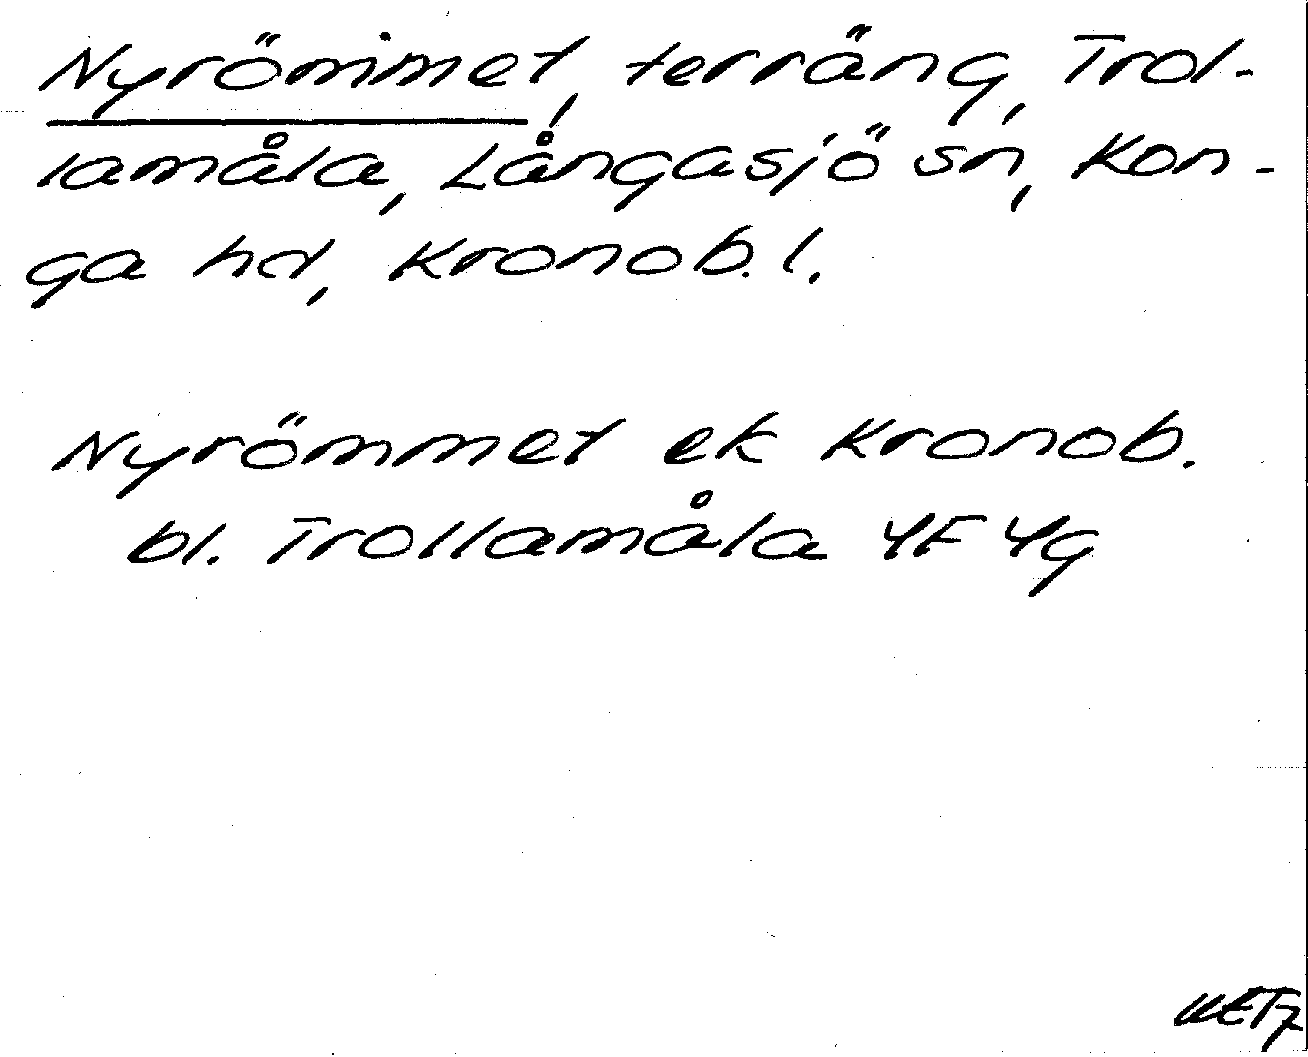 Nyrömmet, terräng, Trol-
lamåla, Långasjö sn, Kon-
ga hd, Kronob. l.
Nyrömmet ek Kronob.
bl. Trollamåla 4F 4g